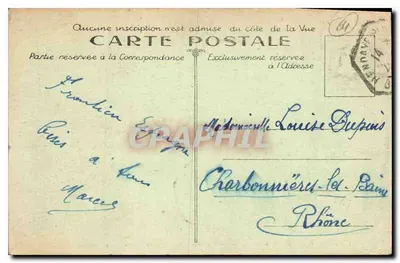 Aucune inscription n'est admise du côté de la Vue
CARTE POSTALE
Partie réservée à la Correspondance
Exclusivement réservée
à l'Adresse
64
HENDAYE
14
Frontière Espagne
bises à tous
Marcel
CPAPHIL
Mademoiselle Louise Dupuis
Charbonnières-les-Bains
Rhône